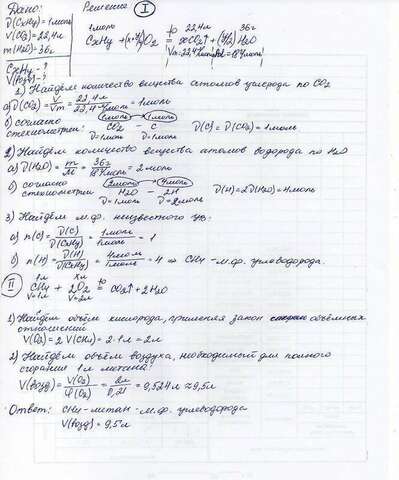 Дано:
ν(CxHy)=1моль
V(CO2)=22,4л
m(H2O)=36г
CxHy-?
V(возд)-?
Решение I
1моль 22,4л 36г
CxHy+(x+y/4)O2 t° = xCO2↑+(y/2)H2O
Vm=22,4л/моль M=18г/моль
1) Найдём количество вещества атомов углерода по CO2
а) ν(CO2)=V/Vm=22,4л/22,4л/моль=1моль
б) согласно стехиометрии: 1моль 1моль
CO2 - C ν(C)=ν(CO2)=1моль
ν=1моль ν=1моль
2) Найдём количество вещества атомов водорода по H2O
а) ν(H2O)=m/M=36г/18г/моль=2моль
б) согласно 2моль 4моль
стехиометрии H2O - 2H ν(H)=2ν(H2O)=4моль
ν=1моль ν=2моль
3) Найдём м.ф. неизвестного ув:
а) n(C)=ν(C)/ν(CxHy)=1моль/1моль=1
б) n(H)=ν(H)/ν(CxHy)=4моль/1моль=4 ⇒ CH4-м.ф. углеводорода.
II 1л xл
CH4 + 2O2 t° = CO2↑+2H2O
V=1л V=2л
1) Найдём объём кислорода, применяя закон объёмных
отношений
V(O2)=2V(CH4)=2·1л=2л
2) Найдём объём воздуха, необходимый для полного
сгорания 1л метана:
V(возд)=V(O2)/φ(O2)=2л/0,21=9,524л≈9,5л
Ответ: CH4-метан-м.ф. углеводорода
V(возд)=9,5л